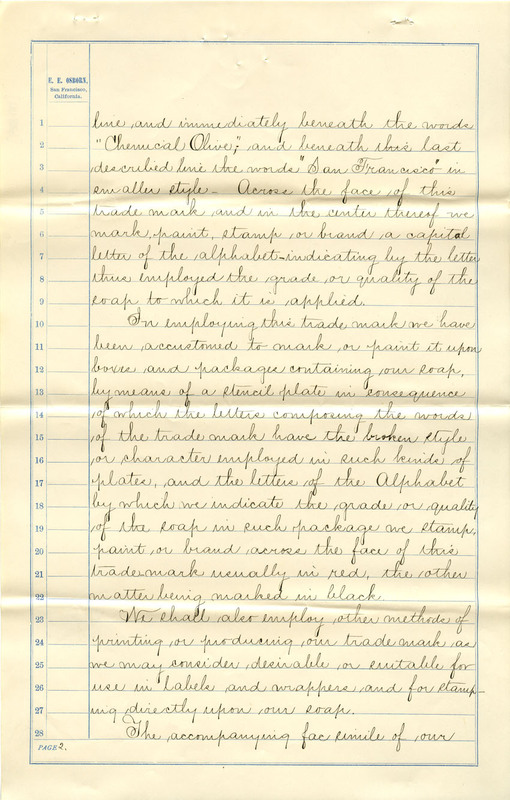 E. E. OSBORN,
San Francisco,
California.
1 line, and immediately beneath the words
2 "Chemical Olive", and beneath this last
3 described line the words "San Francisco" in
4 smaller style - Across the face of this
5 trade mark and in the center thereof we
6 mark, paint, stamp or brand a capital
7 letter of the alphabet - indicating by the letter
8 thus employed the grade or quality of the
9 soap to which it is applied.
10 In employing this trade mark we have
11 been accustomed to mark or paint it upon
12 boxes and packages containing our soap,
13 by means of a stencil plate in consequence
14 of which the letters composing the words
15 of the trade mark have the broken style
16 or character employed in such kinds of
17 plates, and the letters of the Alphabet
18 by which we indicate the grade or quality
19 of the soap in such package we stamp,
20 paint or brand across the face of this
21 trade-mark usually in red, the other
22 matter being marked in black.
23 We shall also employ other methods of
24 printing or producing our trade mark as
25 we may consider desirable or suitable for
26 use in labels and wrappers and for stamp-
27 ing directly upon our soap.
28 The accompanying fac simile of our
PAGE 2.